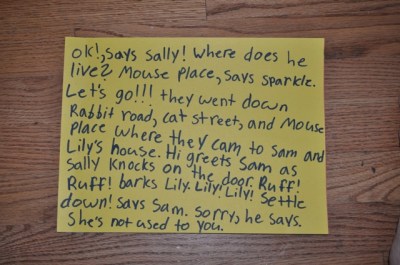 OK!, says sally! Where does he
live? Mouse place, says sparkle.
Let's go!!! they went down
Rabbit road, cat street, and Mouse
place where they cam to Sam and
Lily's house. Hi greets Sam as
sally knocks on the door. Ruff!
Ruff! barks Lily. Lily! Lily! Settle
down! says Sam. Sorry, he says.
She's not used to you.